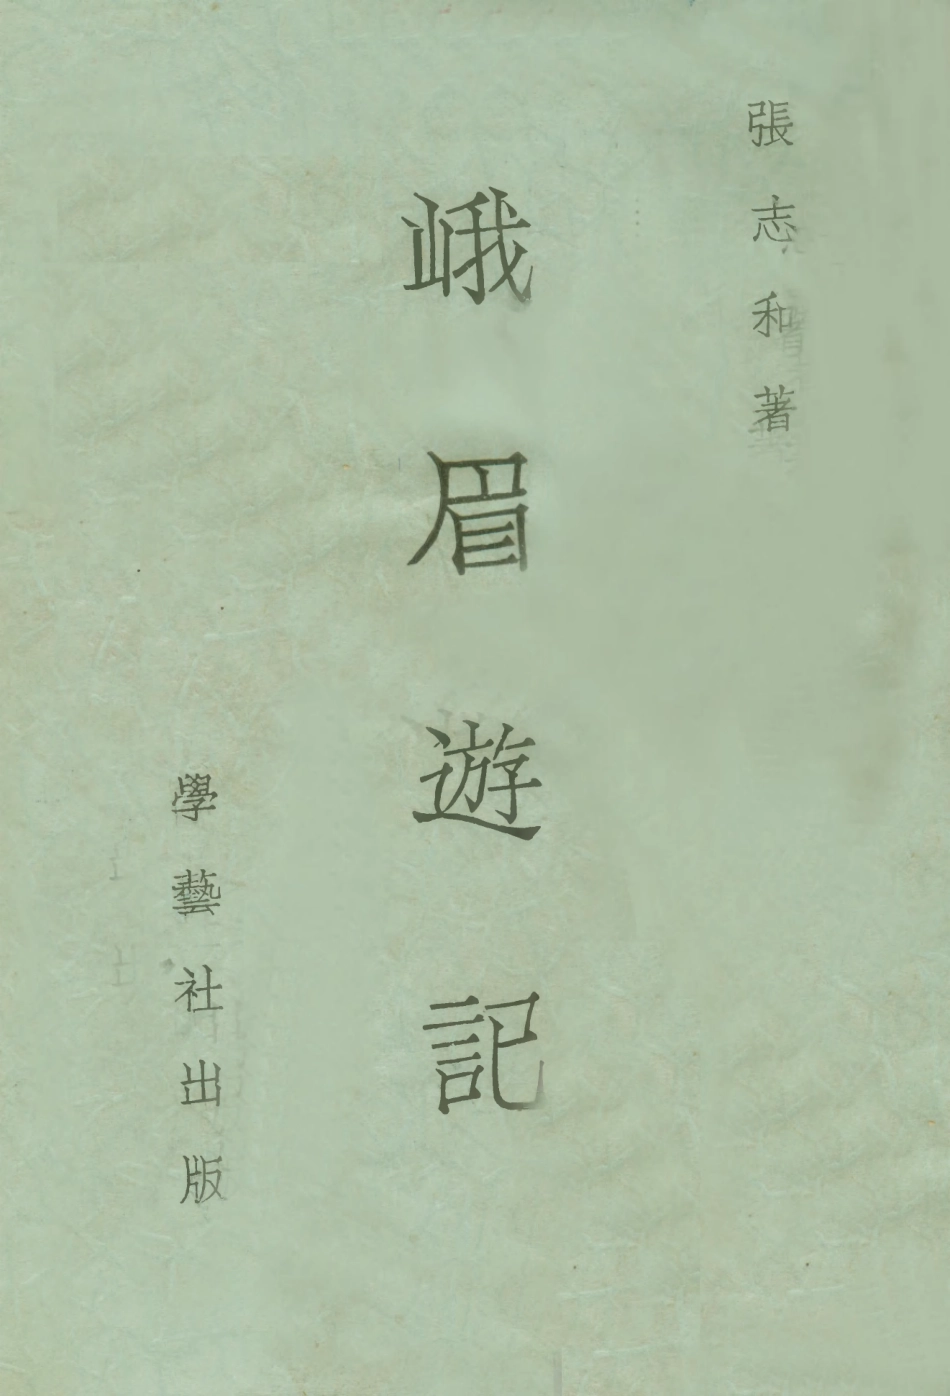 張志和著
峨眉遊記
學藝社出版